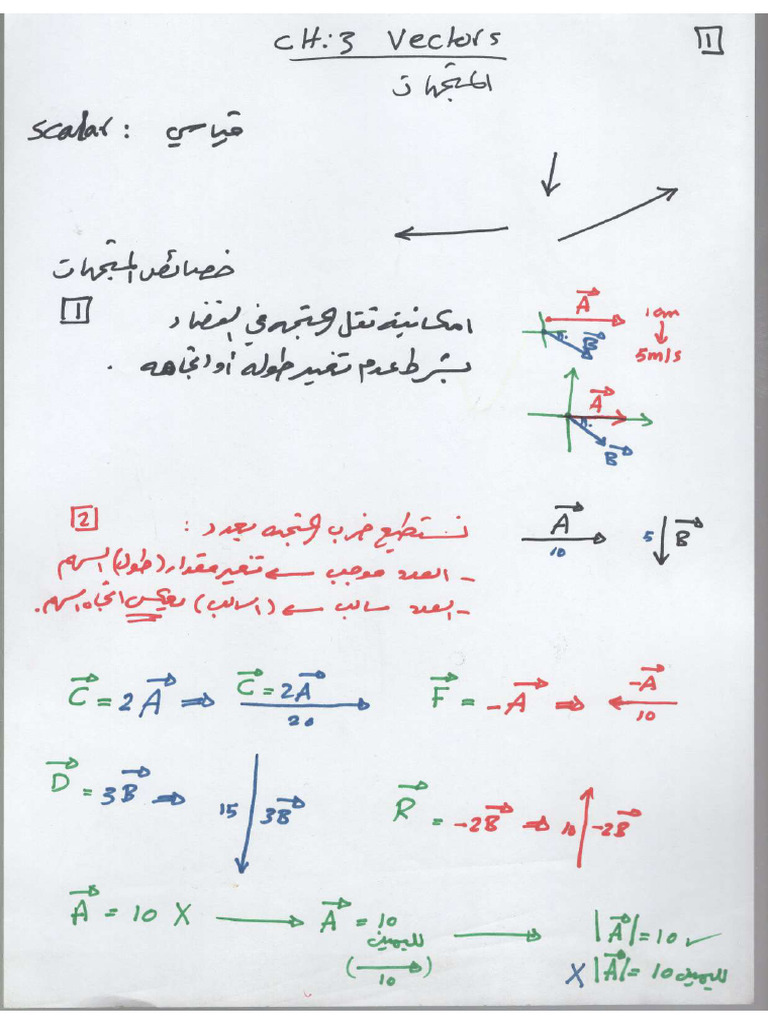 CH:3 Vectors
1
المتجهات
scalar : قياسي
خصائص المتجهات
1
امكانية نقل المتجه في الفضاء
بشرط عدم تغير طوله أو اتجاهه .
A
1cm
5m/s
B
A
B
2
نستطيع ضرب المتجه بعدد :
- العدد موجب تغير مقدار (طول) السهم
- العدد سالب (السالب) يعكس اتجاه السهم.
A
10
5 B
C = 2A ⇒ C = 2A
20
F = -A ⇒ -A
10
D = 3B ⇒ 15 3B
R = -2B ⇒ 10 -2B
A = 10 X → A = 10 → |A| = 10 ✓
لليمين
(→)
10
X |A| = 10 لليمين